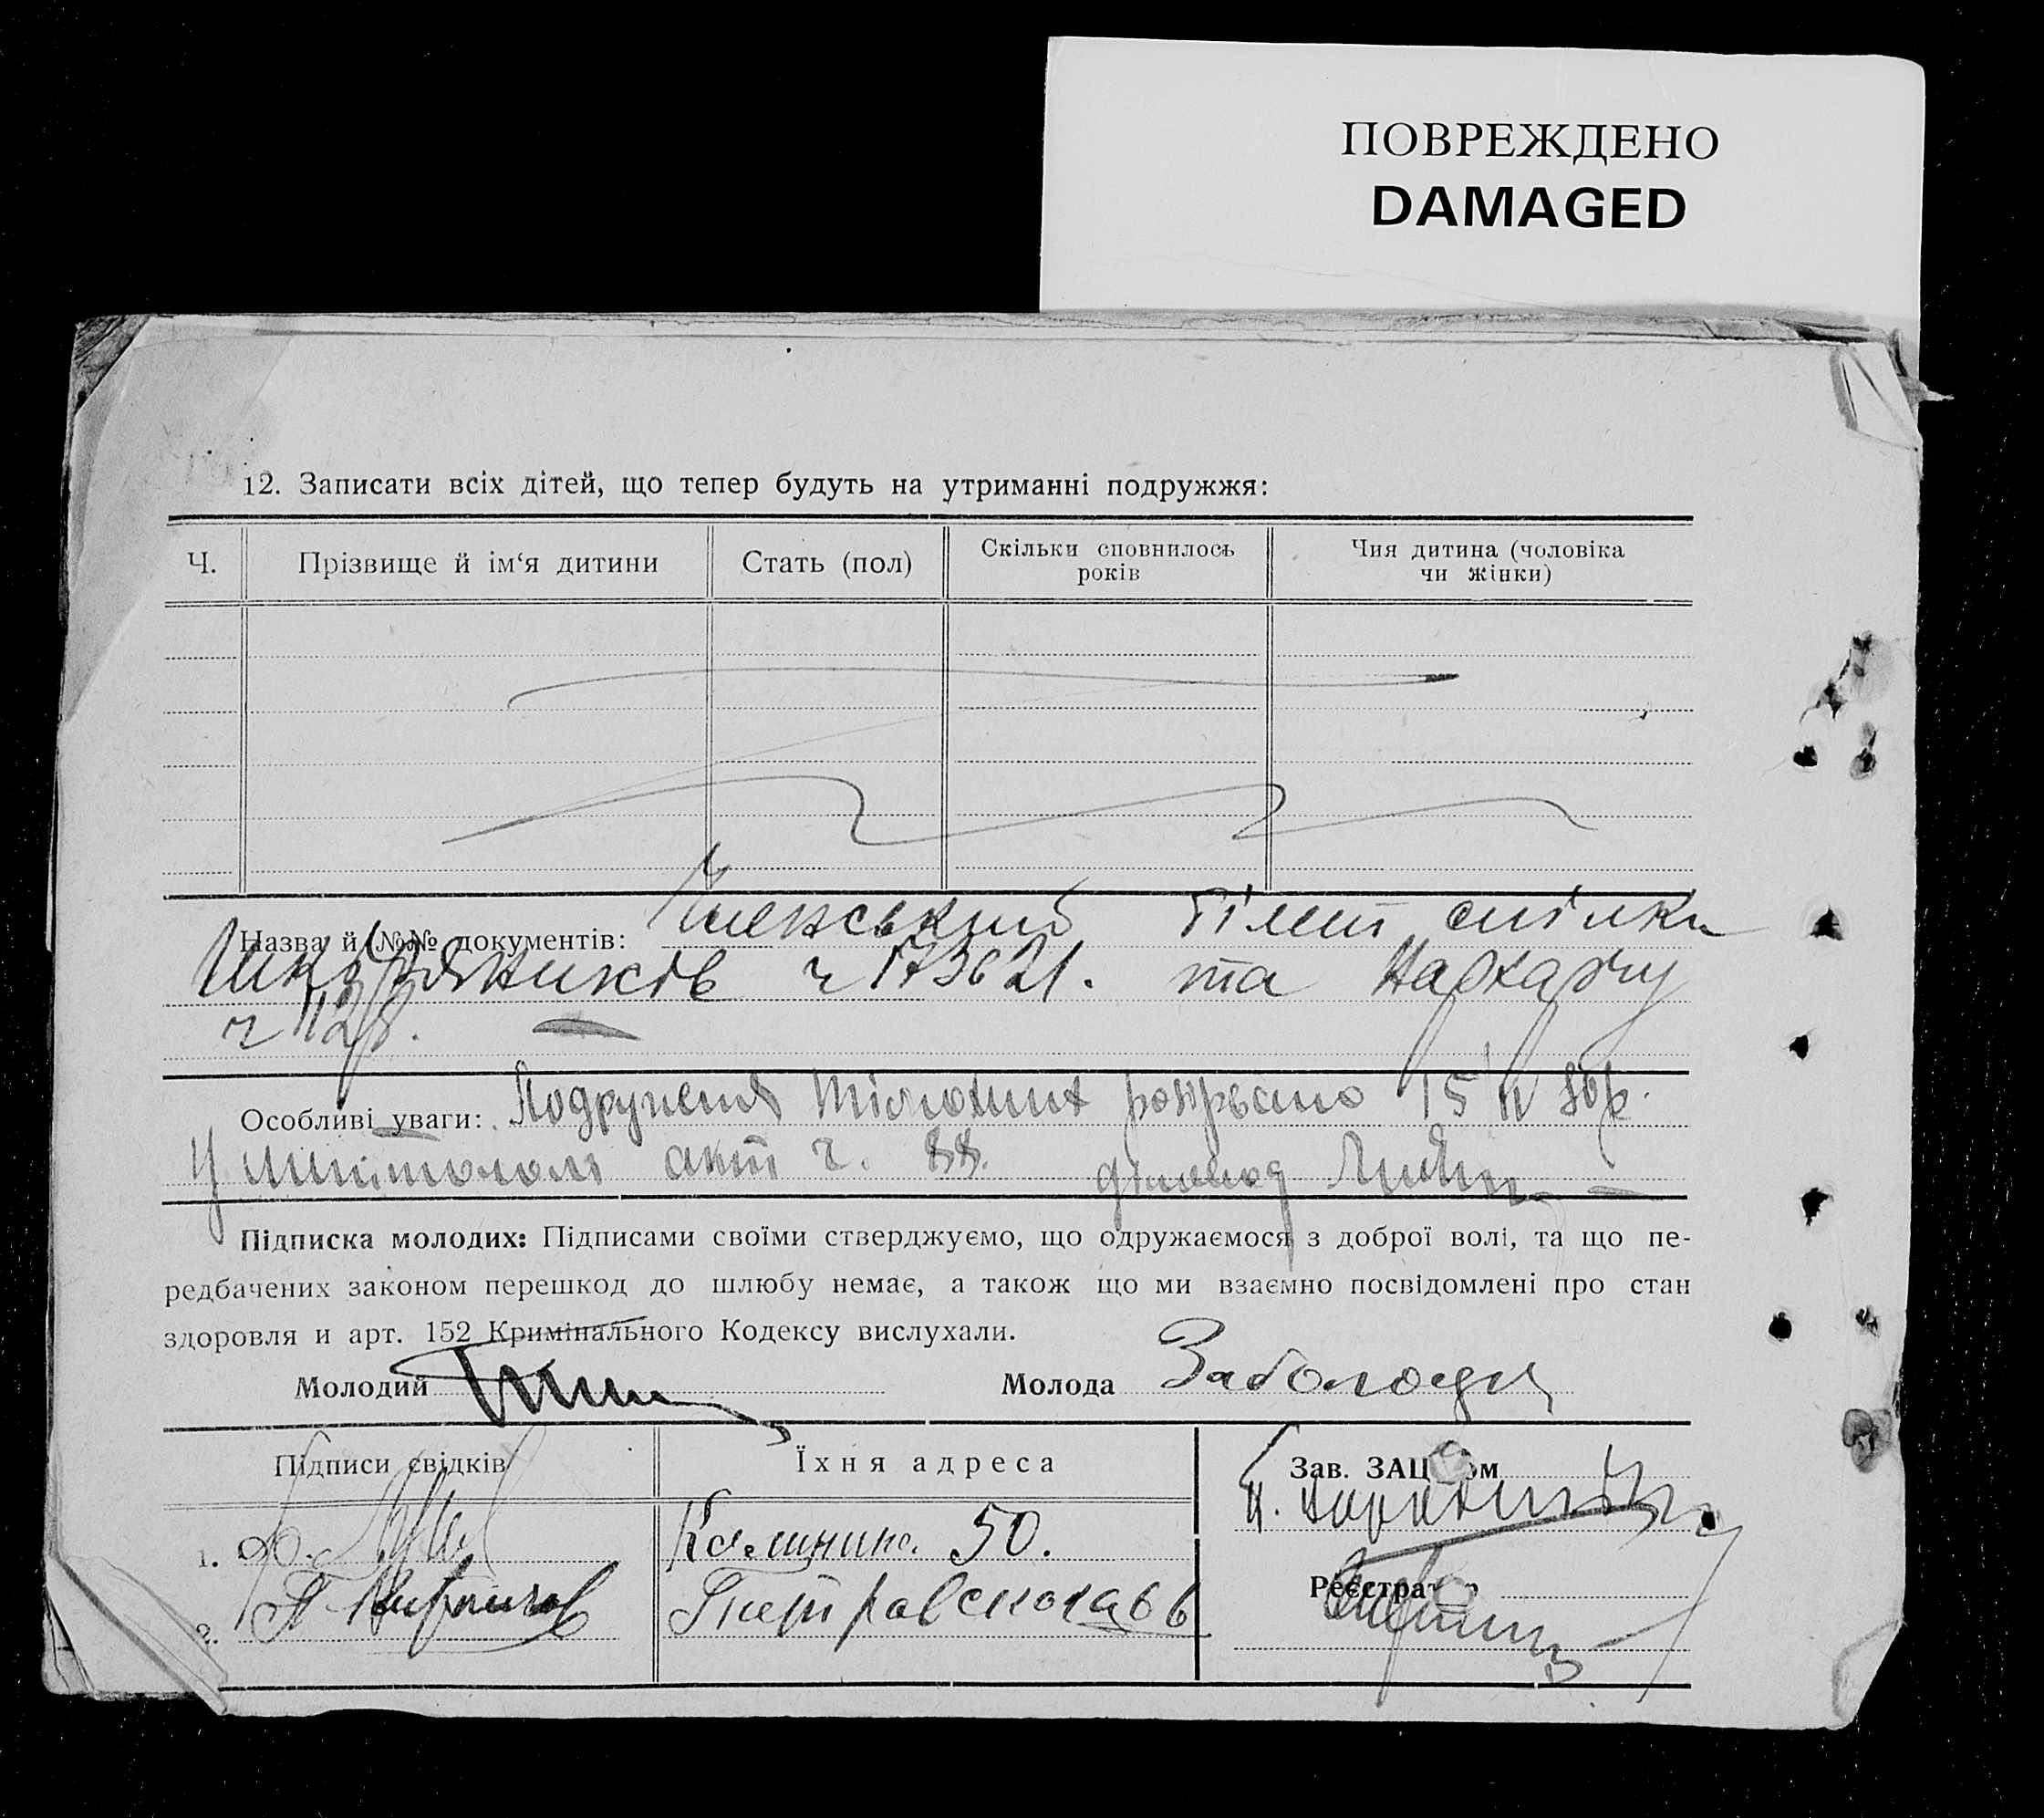 ПОВРЕЖДЕНО
DAMAGED
12. Записати всіх дітей, що тепер будуть на утриманні подружжя:
Ч.
Прізвище й ім‘я дитини
Стать (пол)
Скільки сповнилось
років
Чия дитина (чоловіка
чи жінки)
Назва й №№ документів: Членський білет спілки
Шкіряників ч 173621. та Нархарчу
ч 1128.
Особливі уваги: 15 р.
У акт ч. 88. діловод
Підписка молодих: Підписами своїми стверджуємо, що одружаємося з доброї волі, та що пе-
редбачених законом перешкод до шлюбу немає, а також що ми взаємно посвідомлені про стан
здоровля и арт. 152 Кримінального Кодексу вислухали.
Молодий
Молода
Підписи свідків
Їхня адреса
Зав. ЗАЦСом
1.
Калинина. 50.
2.
Реєстратор